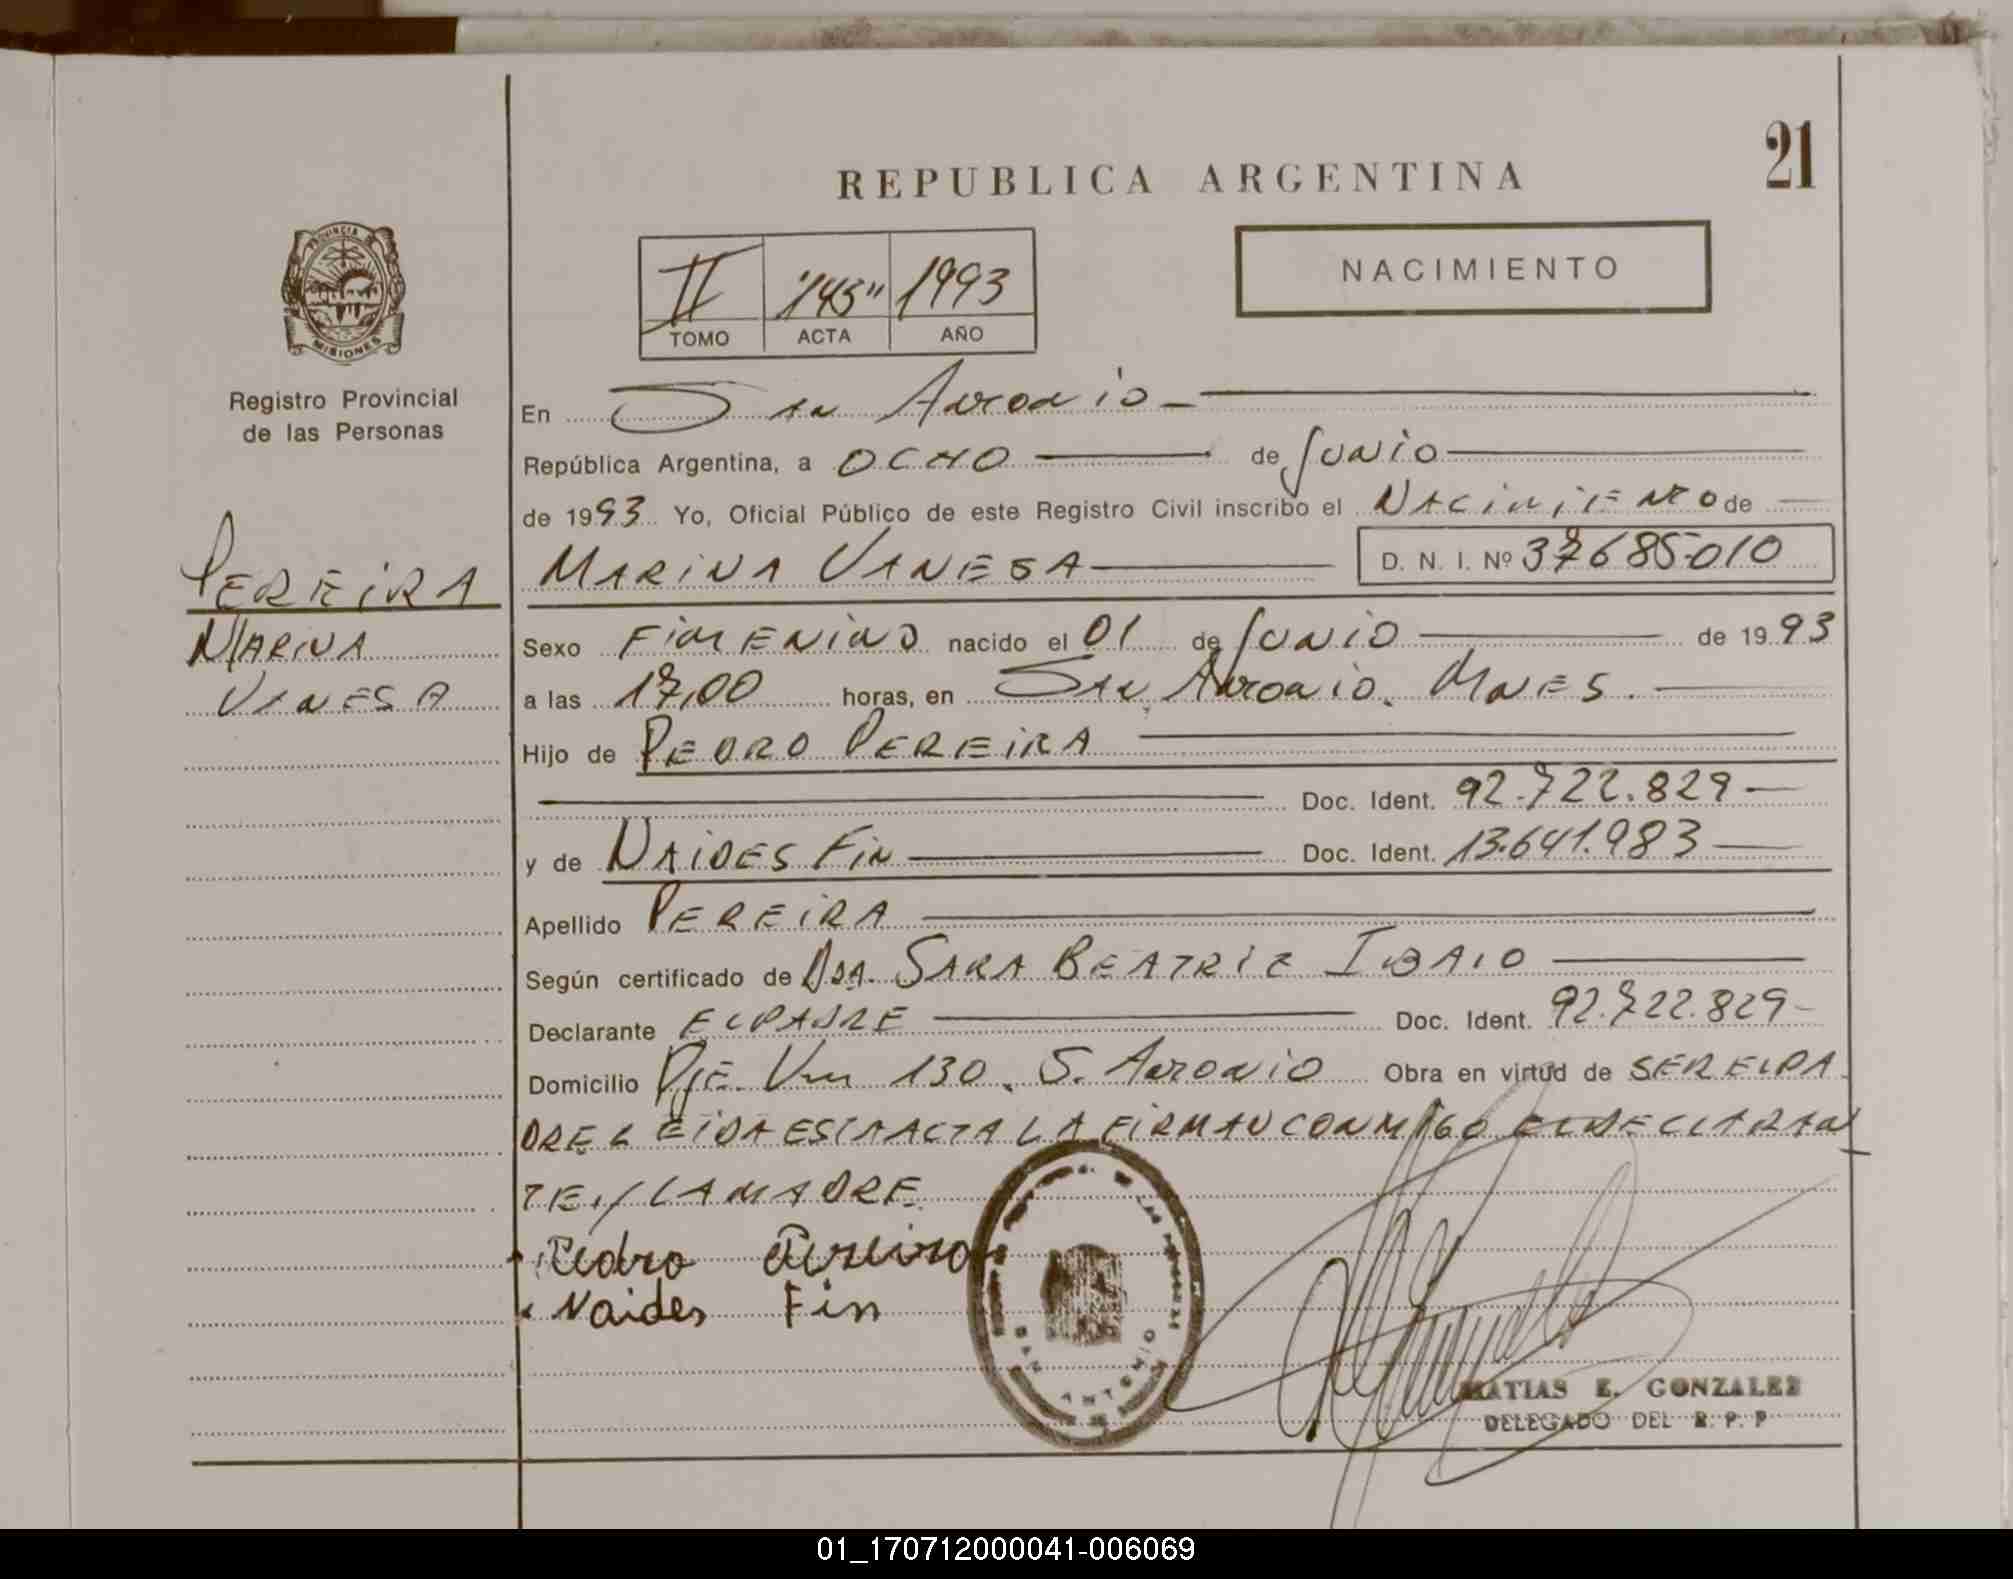 REPUBLICA ARGENTINA
21
PROVINCIA DE
MISIONES
Registro Provincial
de las Personas
II "145" 1993
TOMO ACTA AÑO
NACIMIENTO
PEREIRA
MARINA
VANESA
En San Antonio
República Argentina, a OCHO de Junio
de 1993 Yo, Oficial Público de este Registro Civil inscribo el NACIMIENTO de
MARINA VANESA D. N. I. Nº 37685010
Sexo FEMENINO nacido el 01 de Junio de 1993
a las 17,00 horas, en San Antonio. Mnes.
Hijo de PEDRO PEREIRA
Doc. Ident. 92.722.829
y de NAIDES Fin Doc. Ident. 13.641.983
Apellido PEREIRA
Según certificado de Dra. SARA BEATRIZ
Declarante EL PADRE Doc. Ident. 92.722.829
Domicilio Pje 130. S. Antonio Obra en virtud de SER EL PA
DRE LEIDA ESTA ACTA LA FIRMAN CONMIGO EL DECLARAN
TE, / LA MADRE
Pedro Pereira
Naides Fin
SAN ANTONIO
MATIAS E. GONZALEZ
DELEGADO DEL R. P. P
01_170712000041-006069